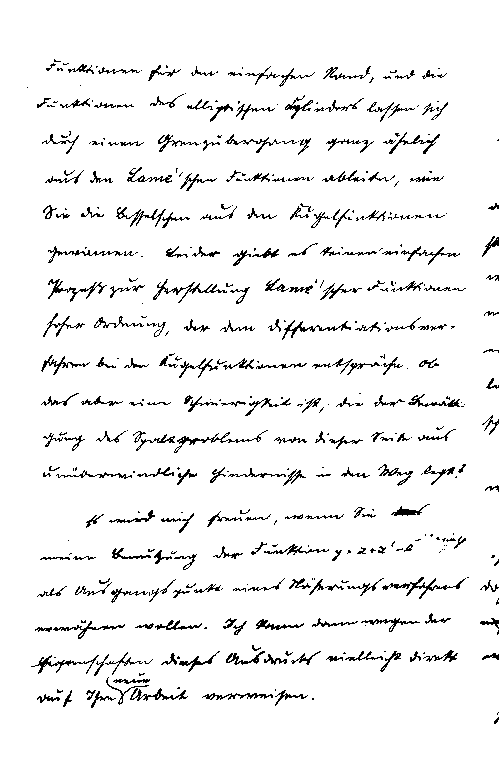 Funktionen für den einfachen Rand, und die
Funktionen des elliptischen Kylinders lassen sich
durch einen Grenzübergang ganz ähnlich
aus den Lamé'schen Funktionen ableiten, wie
Sie die Besselschen aus den Kugelfunktionen
gewinnen. Leider giebt es keinen einfachen
Prozeß zur Herstellung Lamé'scher Funktionen
hoher Ordnung, der dem Differentiationsver-
fahren bei den Kugelfunktionen entspräche. Ob
das aber eine Schwierigkeit ist, die der Bewälti-
gung des Spaltproblems von dieser Seite aus
unüberwindliche Hindernisse in den Weg legt?
Es wird mich freuen, wenn Sie
meine Benutzung der Funktion
als Ausgangspunkt eines Näherungsverfahrens
erwähnen wollen. Ich kann dann wegen der
Eigenschaften dieses Ausdrucks vielleicht direkt
auf Ihre neue Arbeit verweisen.